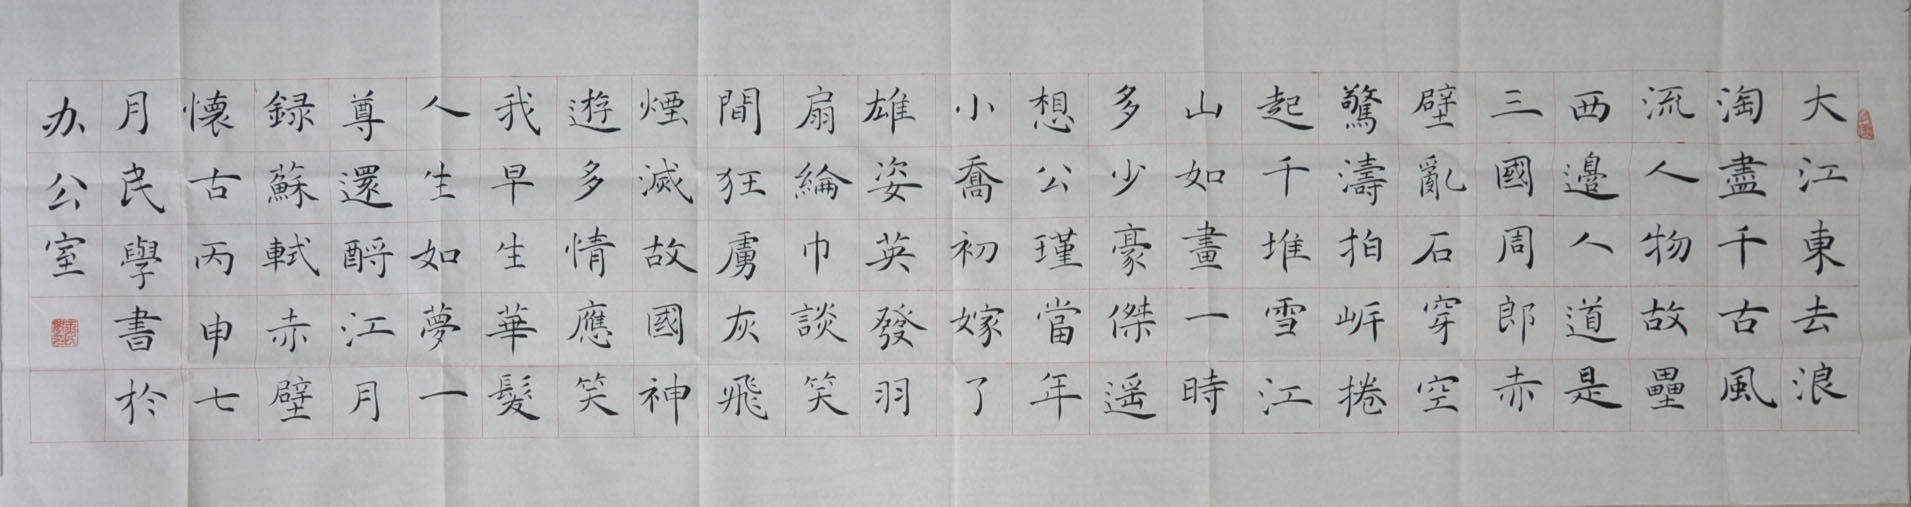 大江東去浪
淘盡千古風
流人物故壘
西邊人道是
三國周郎赤
壁亂石穿空
驚濤拍岍捲
起千堆雪江
山如畫一時
多少豪傑遥
想公瑾當年
小喬初嫁了
雄姿英發羽
扇綸巾談笑
間狂虜灰飛
煙滅故國神
遊多情應笑
我早生華髮
人生如夢一
尊還酹江月
録蘇軾赤壁
懷古丙申七
月民學書於
办公室